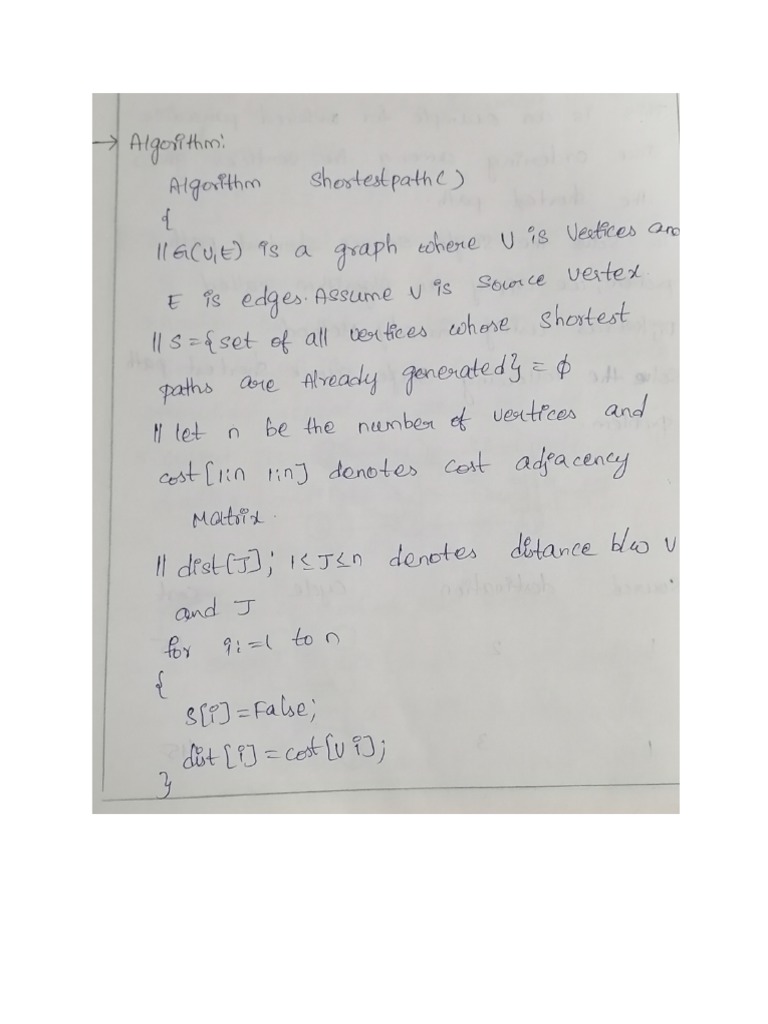 → Algorithm:
Algorithm shortestpath()
{
// G(V,E) is a graph where V is vertices and
E is edges. Assume v is source vertex.
// S = {set of all vertices whose shortest
paths are Already generated} = ϕ
// let n be the number of vertices and
cost[1:n 1:n] denotes cost adjacency
Matrix.
// dist[J]; 1≤J≤n denotes distance b/w v
and J
for i:=1 to n
{
S[i]=False;
dist[i]=cost[v i];
}